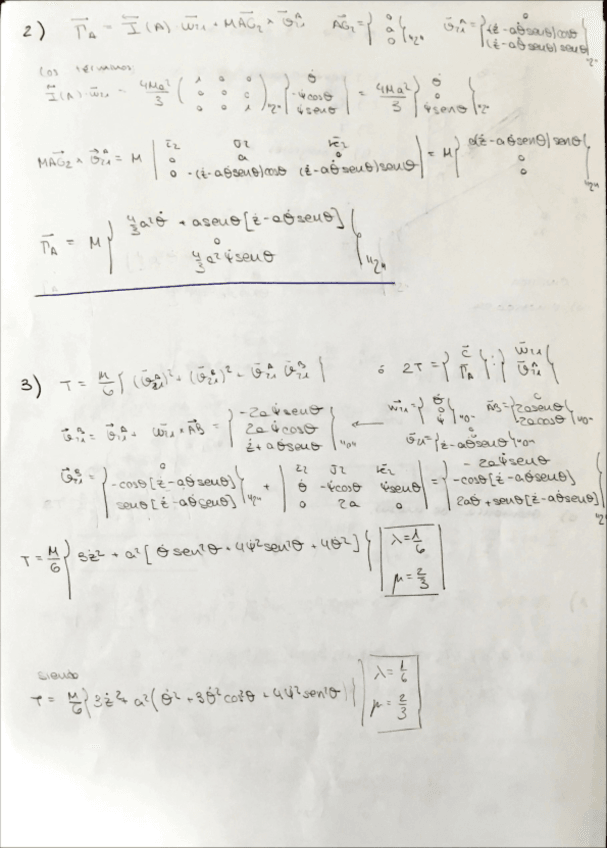 2) Γ̄_A = Ī(A) ω̄₂₁ + M A̅G̅₂ × v̄₂₁ᴬ   A̅G̅₂ = { 0 a 0 }"2"   v̄₂₁ᴬ = { 0 -(ż - aθ̇senθ)cosθ (ż - aθ̇senθ)senθ }"2"
Los términos:
Ī(A) ω̄₂₁ = 4Ma²/3 ( 1 0 0 / 0 0 0 / 0 0 1 )"2" { θ̇ -ψ̇cosθ ψ̇senθ } = 4Ma²/3 { θ̇ 0 ψ̇senθ }"2"
M A̅G̅₂ × v̄₂₁ᴬ = M | ī₂ j̄₂ k̄₂ / 0 a 0 / 0 -(ż-aθ̇senθ)cosθ (ż-aθ̇senθ)senθ | = M { a(ż-aθ̇senθ)senθ 0 0 }"2"
Γ̄_A = M { 4/3 a²θ̇ + asenθ[ż-aθ̇senθ] 0 4/3 a²ψ̇senθ }"2"
3) T = M/6 { (v̄₂₁ᴬ)² + (v̄₂₁ᴮ)² + v̄₂₁ᴬ v̄₂₁ᴮ }   ó   2T = { C̄ Γ̄_A } : { ω̄₂₁ v̄₂₁ᴬ }
v̄₂₁ᴮ = v̄₂₁ᴬ + ω̄₂₁ × A̅B̅ = { -2aψ̇senθ 2aψ̇cosθ ż+aθ̇senθ }"0" ← ω̄₂₁ = { θ̇ 0 ψ̇ }"0"   A̅B̅ = { 0 2asenθ 2acosθ }"0"
v̄₂₁ = { ż-aθ̇senθ }"0"
v̄₂₁ᴮ = { 0 -cosθ[ż-aθ̇senθ] senθ[ż-aθ̇senθ] }"2" + | ī₂ j̄₂ k̄₂ / θ̇ -ψ̇cosθ ψ̇senθ / 0 2a 0 | = { -2aψ̇senθ -cosθ[ż-aθ̇senθ] 2aθ̇+senθ[ż-aθ̇senθ] }"2"
T = M/6 { 3ż² + a²[θ̇sen²θ + 4ψ̇²sen²θ + 4θ̇²] } | λ=1/6 μ=2/3 |
siendo
T = M/6 { 3ż² + a²(θ̇² + 3θ̇²cos²θ + 4ψ̇²sen²θ) } | λ=1/6 μ=2/3 |